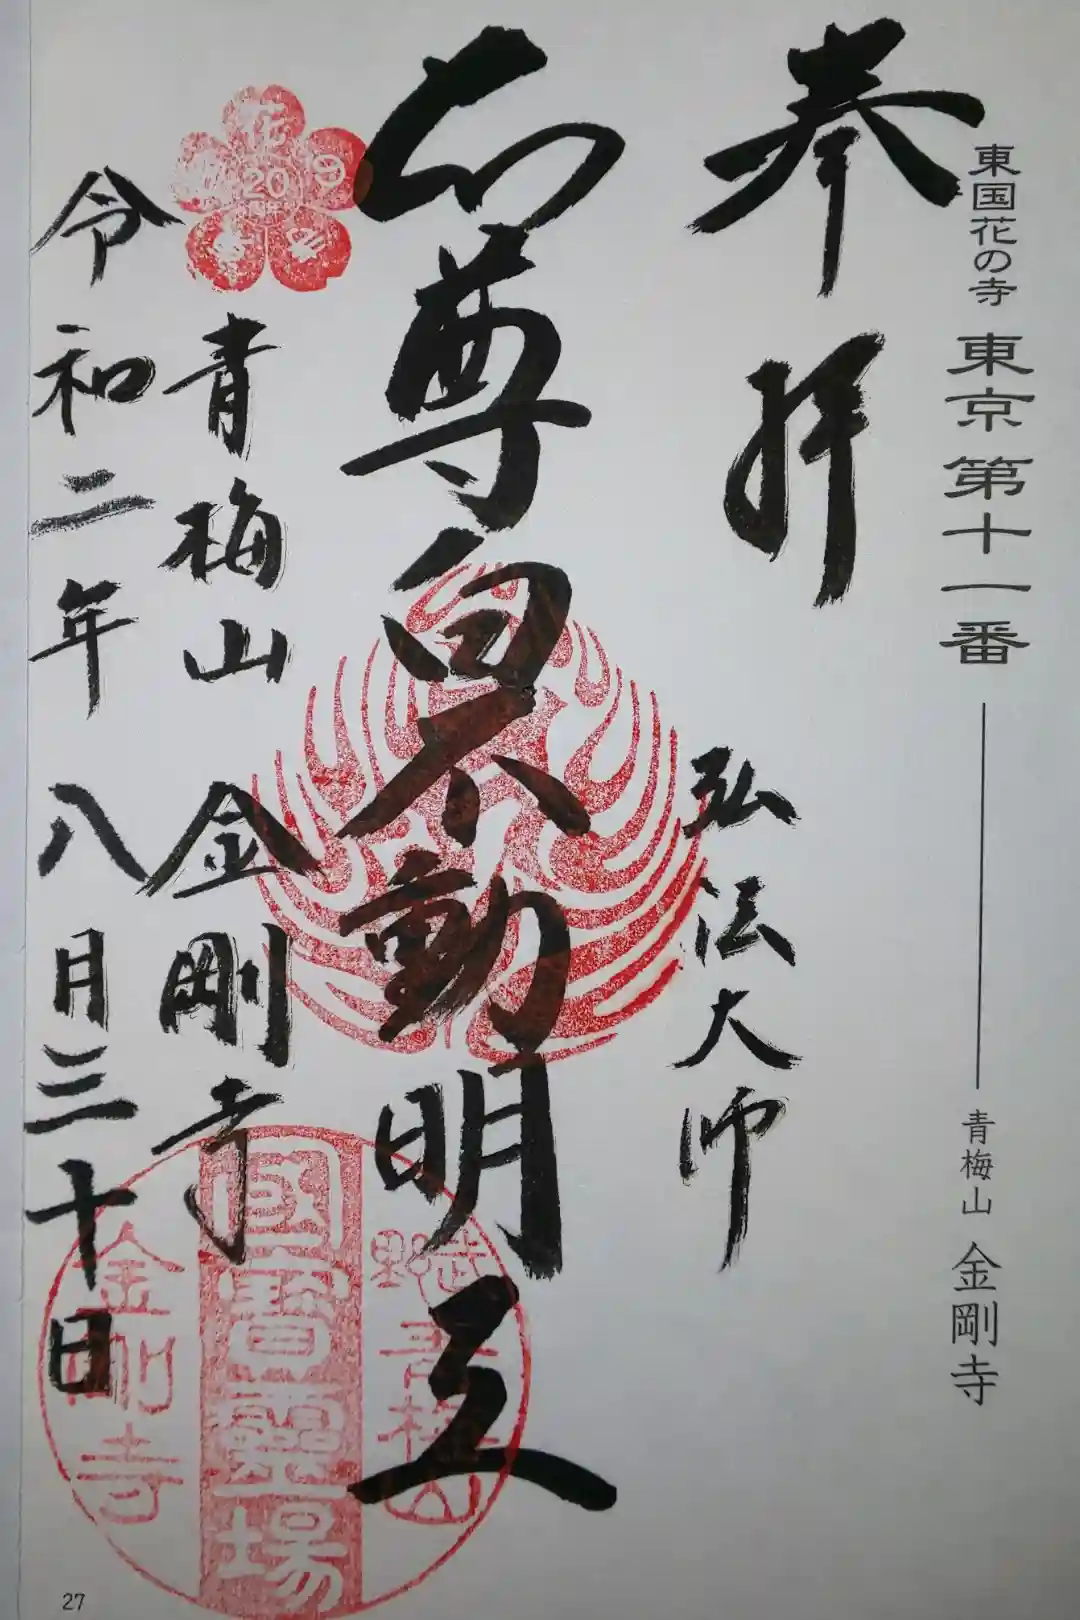 東国花の寺 東京第十一番 青梅山 金剛寺
奉拝
弘法大師
本尊白不動明王
青梅山 金剛寺
令和二年八月三十日
花の寺
20
周年
武野
青梅山
國寶靈場
金剛寺
27